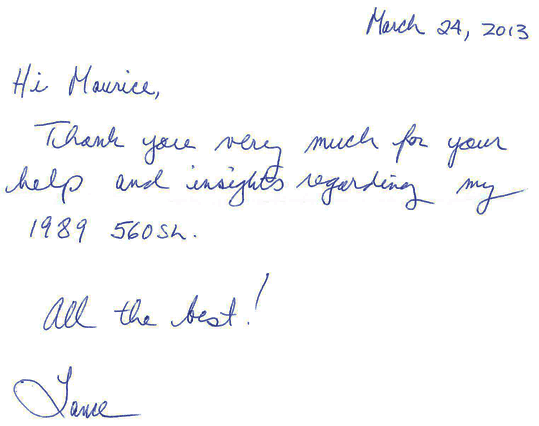 March 24, 2013
Hi Maurice,
Thank you very much for your
help and insights regarding my
1989 560SL.
All the best!
Lance